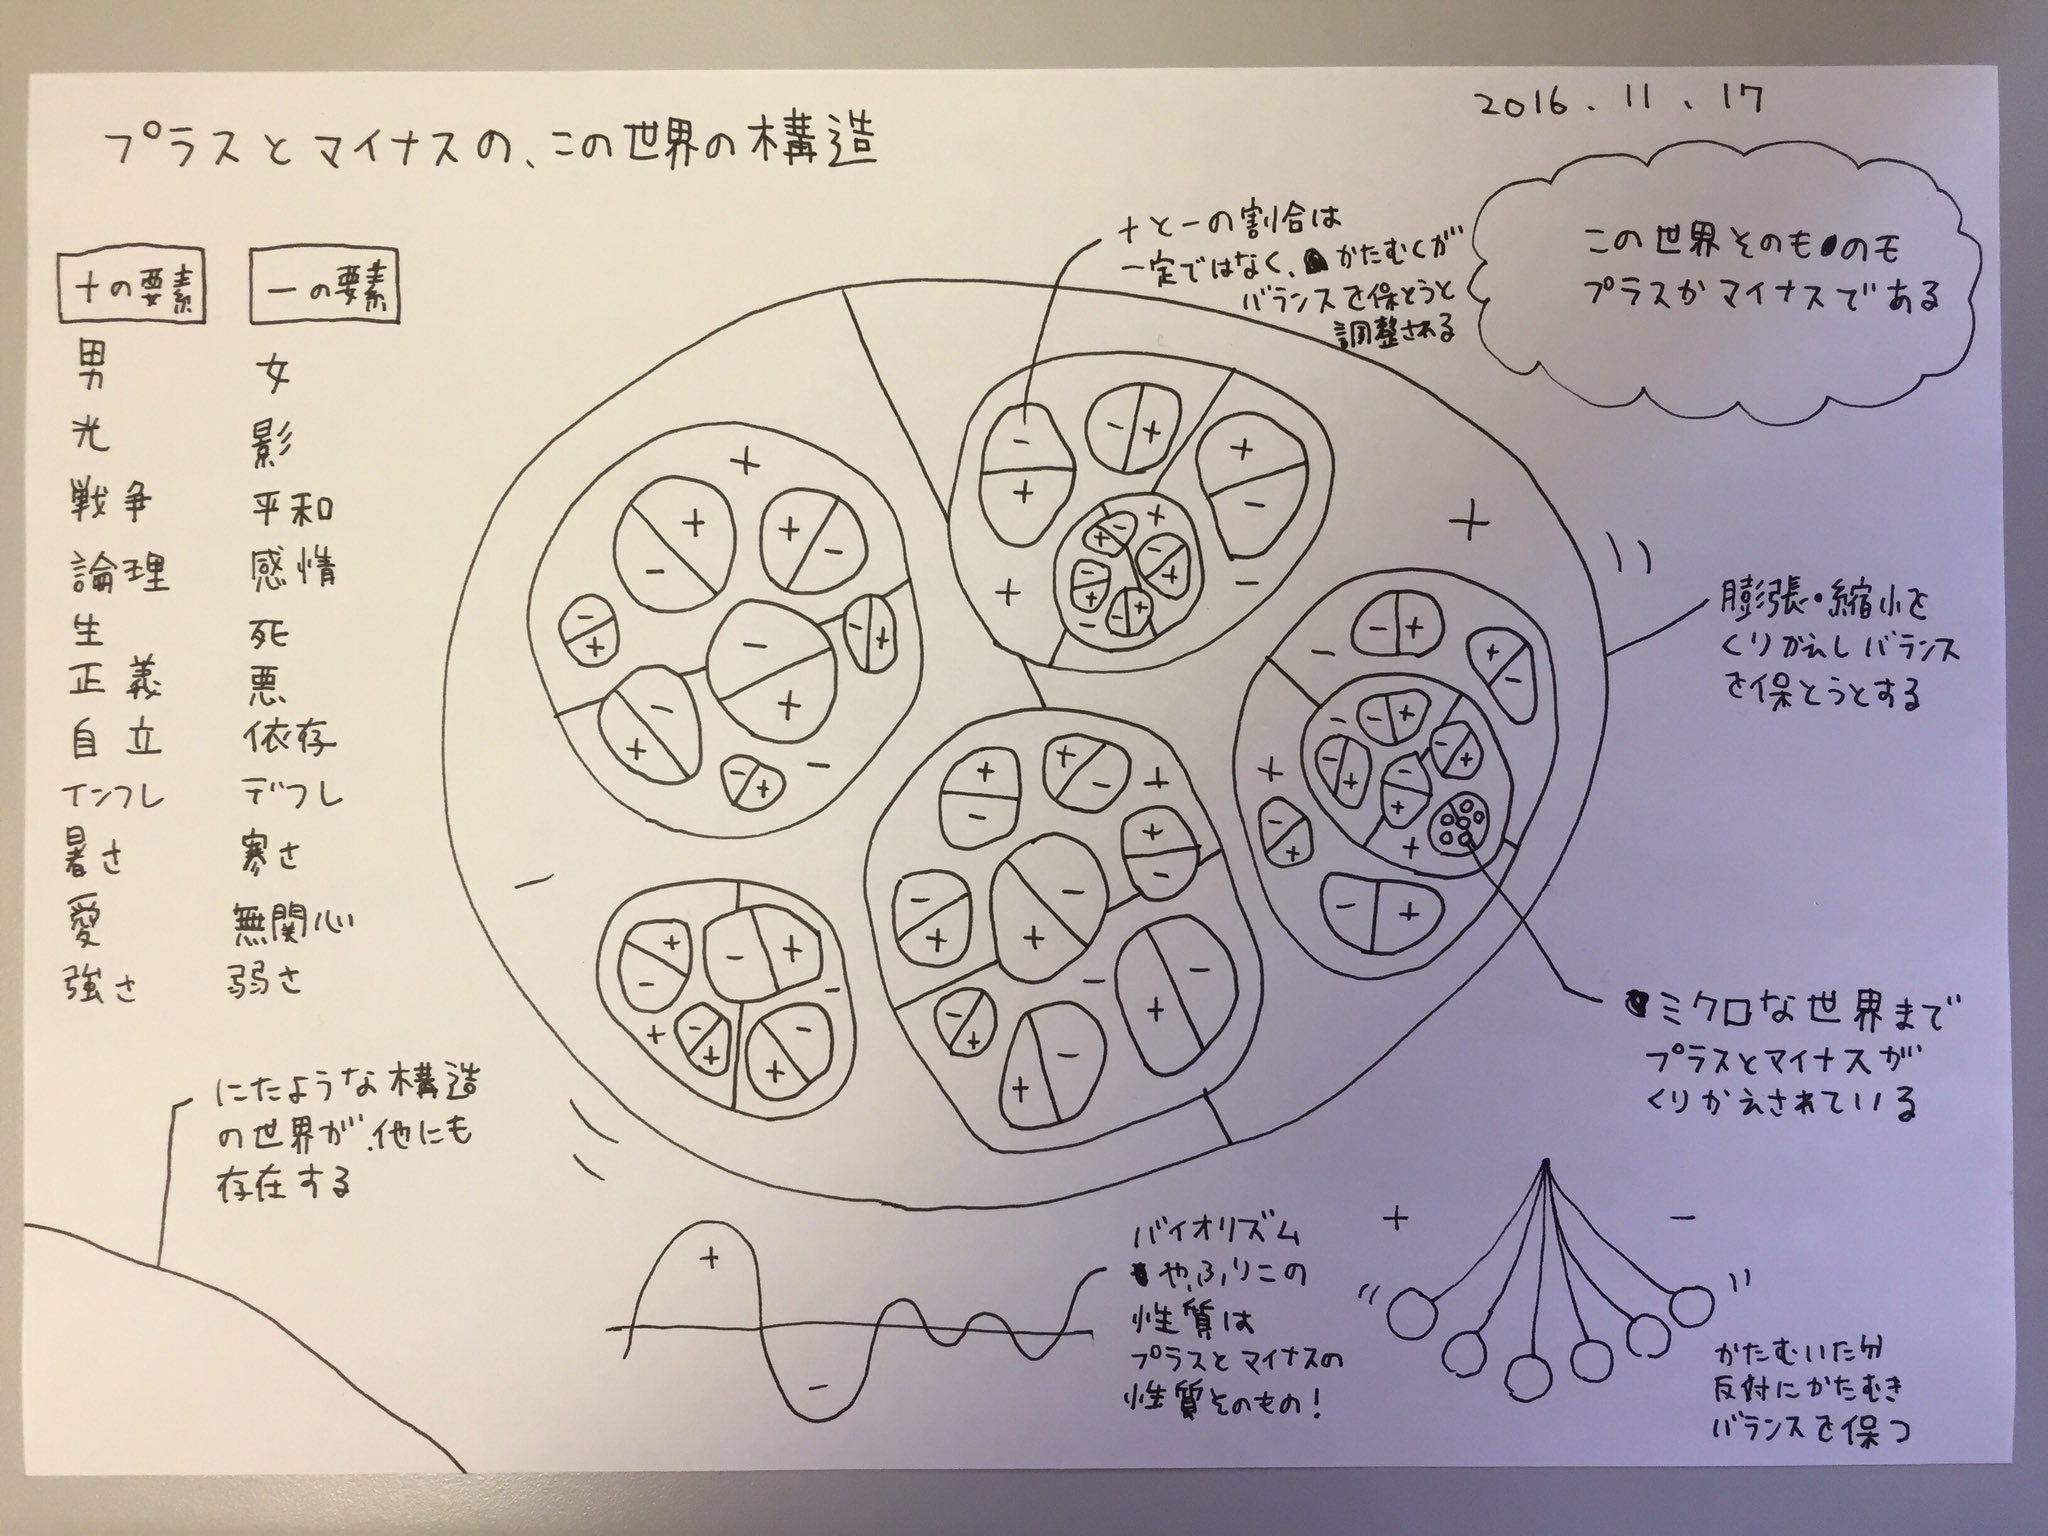 プラスとマイナスの、この世界の構造
2016.11.17
+の要素
男
光
戦争
論理
生
正義
自立
インフレ
暑さ
愛
強さ
ーの要素
女
影
平和
感情
死
悪
依存
デフレ
寒さ
無関心
弱さ
+とーの割合は
一定ではなく、かたむくが
バランスを保とうと
調整される
この世界そのものも
プラスかマイナスである
膨張・縮小を
くりかえしバランス
を保とうとする
ミクロな世界まで
プラスとマイナスが
くりかえされている
にたような構造
の世界が、他にも
存在する
バイオリズム
や、ふりこの
性質は
プラスとマイナスの
性質そのもの!
+
-
かたむいた分
反対にかたむき
バランスを保つ